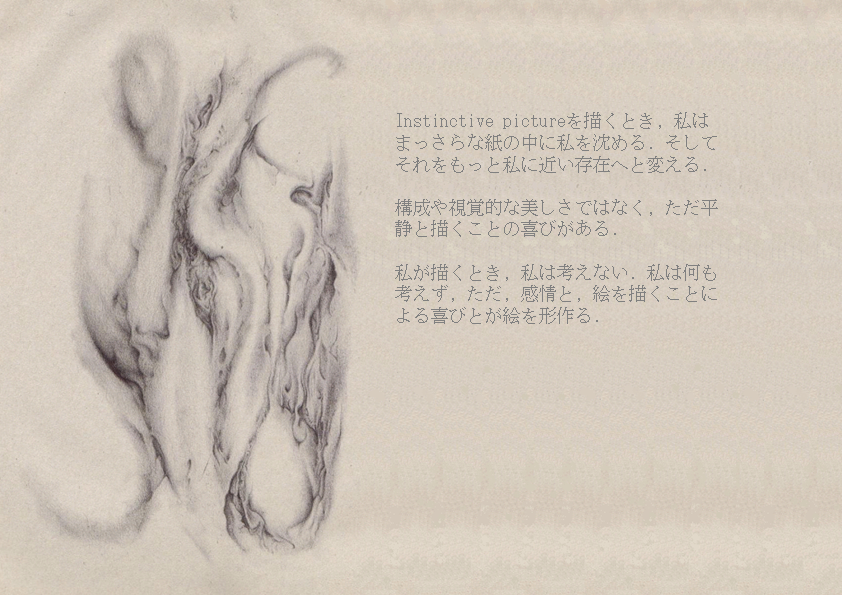 Instinctive pictureを描くとき, 私は
まっさらな紙の中に私を沈める. そして
それをもっと私に近い存在へと変える.
構成や視覚的な美しさではなく, ただ平
静と描くことの喜びがある.
私が描くとき, 私は考えない. 私は何も
考えず, ただ, 感情と, 絵を描くことに
よる喜びとが絵を形作る.